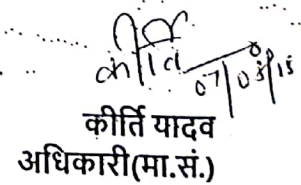 कीर्ति
07/03/15
कीर्ति यादव
अधिकारी(मा.सं.)